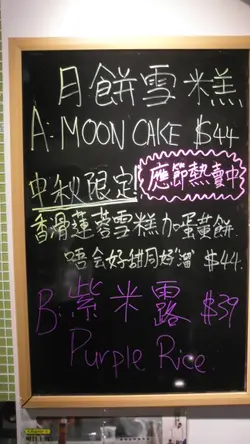 月餅雪糕
A: MOON CAKE $44
中秋限定! 應節熱賣中
香滑蓮蓉雪糕加蛋黃餅.
唔会好甜月好溜 $44.
B: 紫米露 $39
Purple Rice